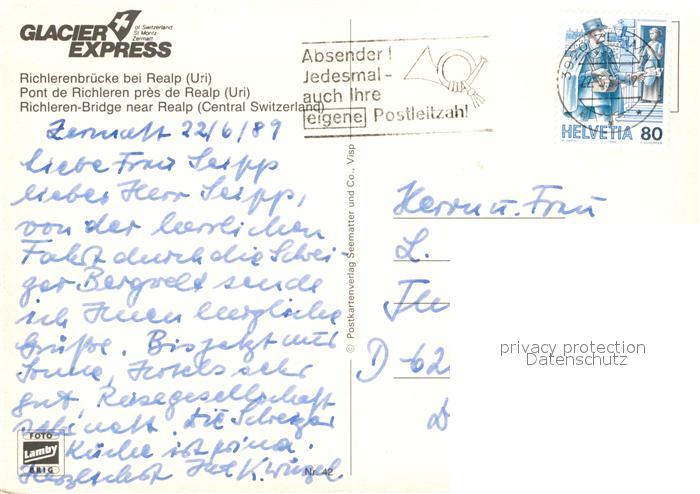 GLACIER EXPRESS
of Switzerland
St. Moritz
Zermatt
Richlerenbrücke bei Realp (Uri)
Pont de Richleren près de Realp (Uri)
Richleren-Bridge near Realp (Central Switzerland)
Absender!
Jedesmal-
auch Ihre
eigene Postleitzahl
HELVETIA 80
Zermatt 22/6/89
liebe Frau Seipp
lieber Herr Seipp,
von der herrlichen
Fahrt durch die Schwei
zer Bergwelt sende
ich Ihnen herzliche
Grüße. Bis jetzt nur
Sonne, Hotels sehr
gut, Reisegesellschaft
Die Schweizer
Küche ist prima.
Herzlichst Ihr K.
© Postkartenverlag Seematter und Co., Visp
Herrn u. Frau
L.
D-62
privacy protection
Datenschutz
FOTO
Lamby
BRIG
Nr. 42